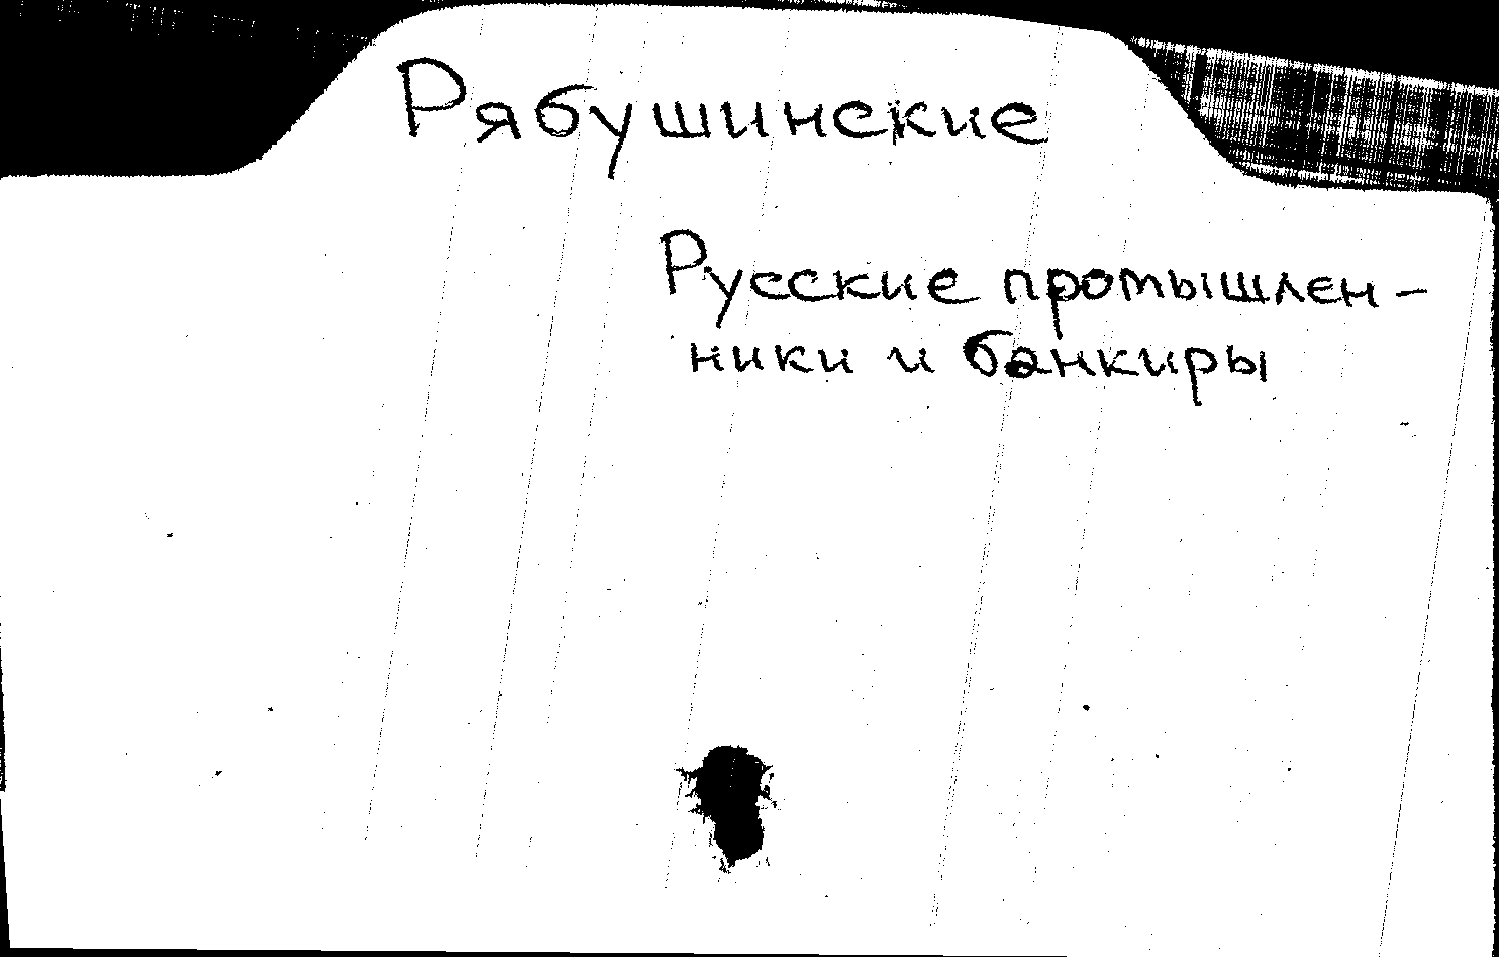 Рябушинские
Русские промышлен-
ники и банкиры